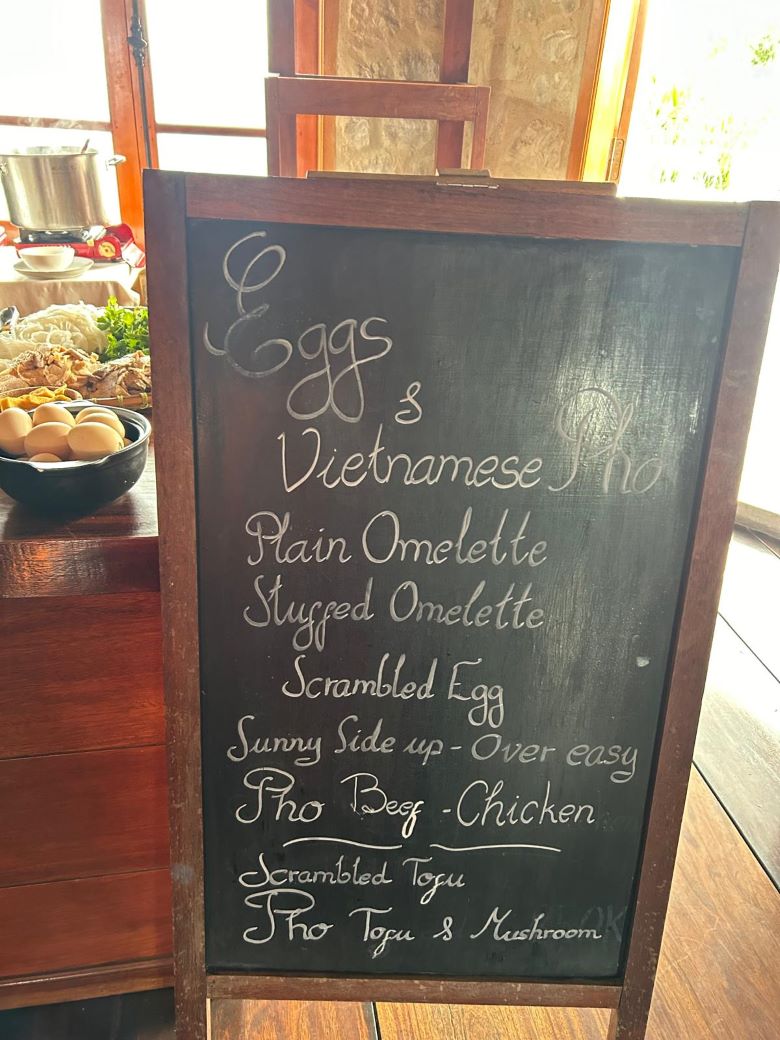 Eggs
&
Vietnamese Pho
Plain Omelette
Stuffed Omelette
Scrambled Egg
Sunny Side up - Over easy
Pho Beef - Chicken
Scrambled Tofu
Pho Tofu & Mushroom